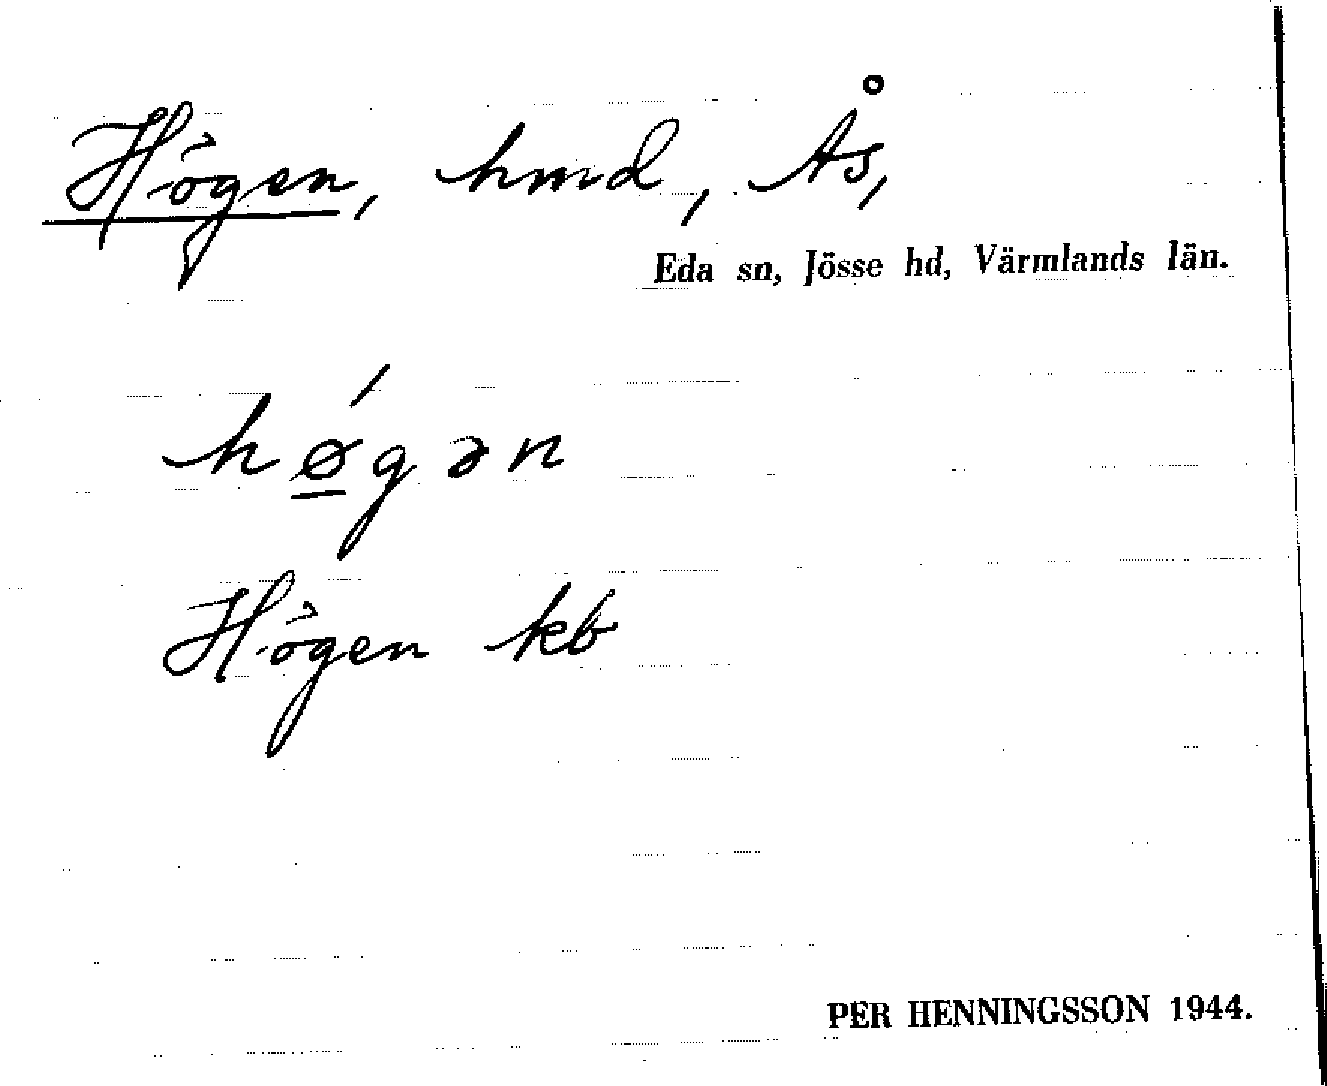 Högen, hmd, Ås,
Eda sn, Jösse hd, Värmlands län.
hǿ̱gən
Högen kb
PER HENNINGSSON 1944.